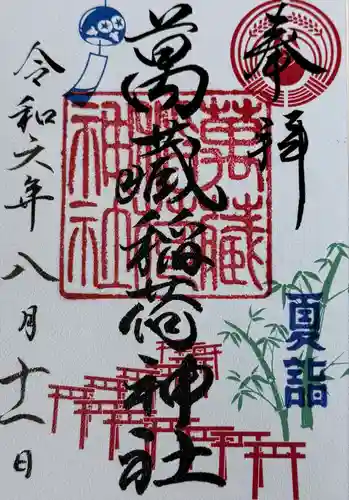 奉拝
夏詣
萬蔵稲荷神社
萬蔵稲荷神社
令和六年八月十一日